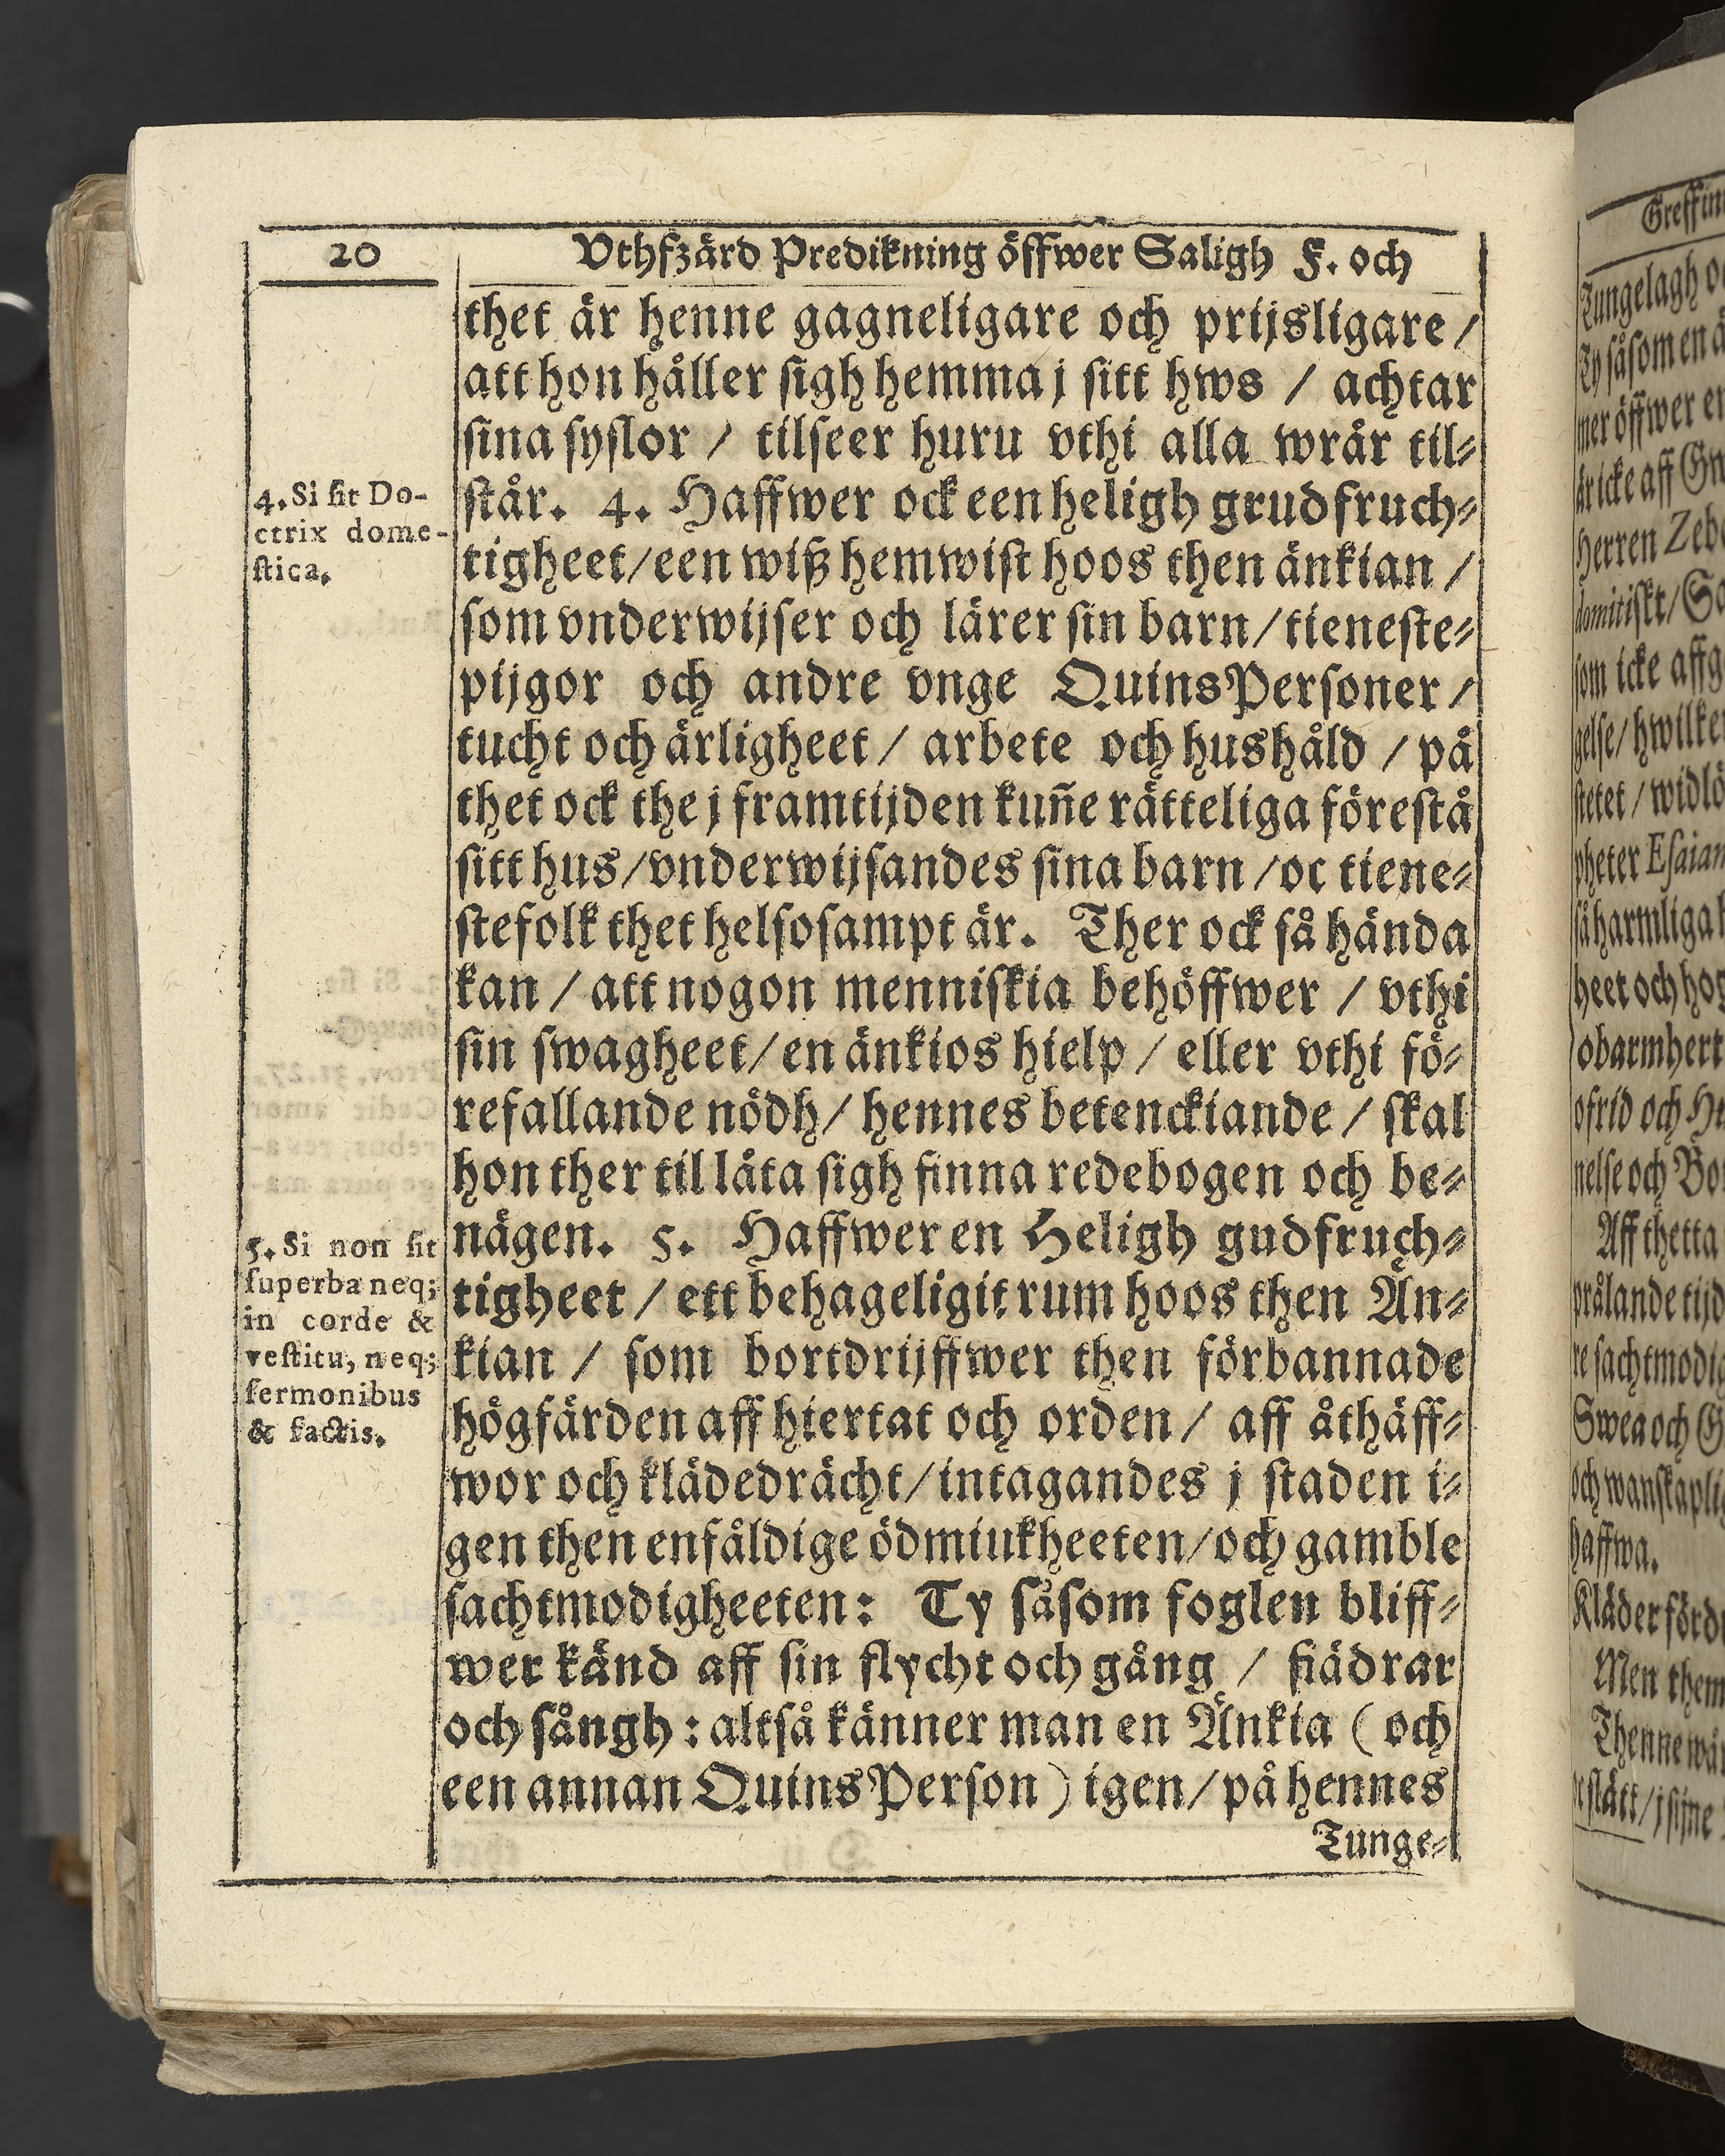 20
Vthfzärd Predikning öffwer Saligh F. och
thet är henne gagneligare och prijsligare /
att hon håller sigh hemma j sitt hws / achtar
sina syslor / tilseer huru vthi alla wrår til⸗
står. 4. Haffwer ock een heligh grudfruch⸗
tigheet/een wiß hemwist hoos then änkian /
som vnderwijser och lärer sin barn/tieneste⸗
pijgor och andre vnge QuinsPersoner /
tucht och ärligheet / arbete och hushåld / på
thet ock the j framtijden kun̄e rätteliga förestå
sitt hus/vnderwijsandes sina barn /oc tiene⸗
stefolk thet helsosampt är. Ther ock så hända
kan / att nogon menniskia behöffwer / vthi
sin swagheet/en änkios hielp / eller vthi fö⸗
refallande nödh/ hennes betenckiande / skal
hon ther til låta sigh finna redebogen och be⸗
nägen. 5. Haffwer en Heligh gudfruch⸗
tigheet / ett behageligit rum hoos then Än⸗
kian / som bortdrijffwer then förbannade
högfärden aff hiertat och orden / aff åthäff⸗
wor och klädedrächt/intagandes j staden i⸗
gen then enfåldige ödmiukheeten/och gamble
sachtmodigheeten: Ty såsom foglen bliff⸗
wer känd aff sin flycht och gång / fiädrar
och sångh : altså känner man en Änkia ( och
een annan QuinsPerson ) igen/på hennes
Tunge⸗
4. Si sit Do-
ctrix dome-
stica.
5. Si non sit
superba neq;
in corde &
vestitu, neq;
sermonibus
& factis.
Tungelagh
Ty såsom en
mer öffwer
är icke aff
Herren
som icke
gelse/
/ widlö
pheter Esaiam
så harmliga
heet och
obarmhert
ofrid och
nelse och
Aff thetta
prålande tijd
re sachtmodig
Swea och
haffwa.
Kläder förd
Men them
Thenne